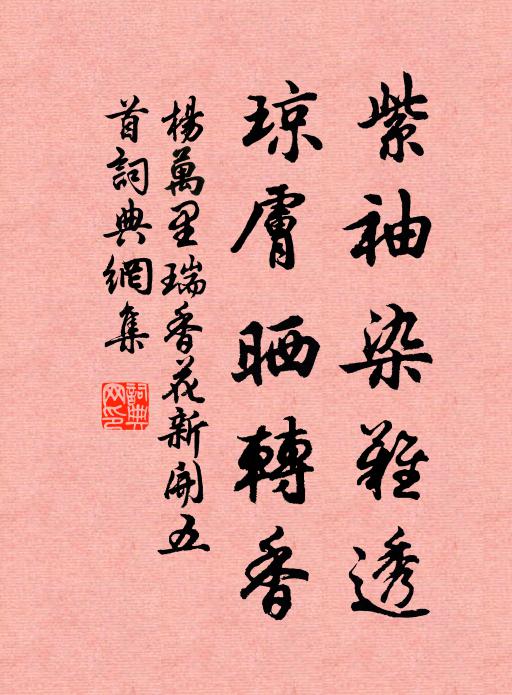 紫袖染難透
琼膚晒轉香
楊萬里瑞香花新開五
首詞典網集
詞典
网印